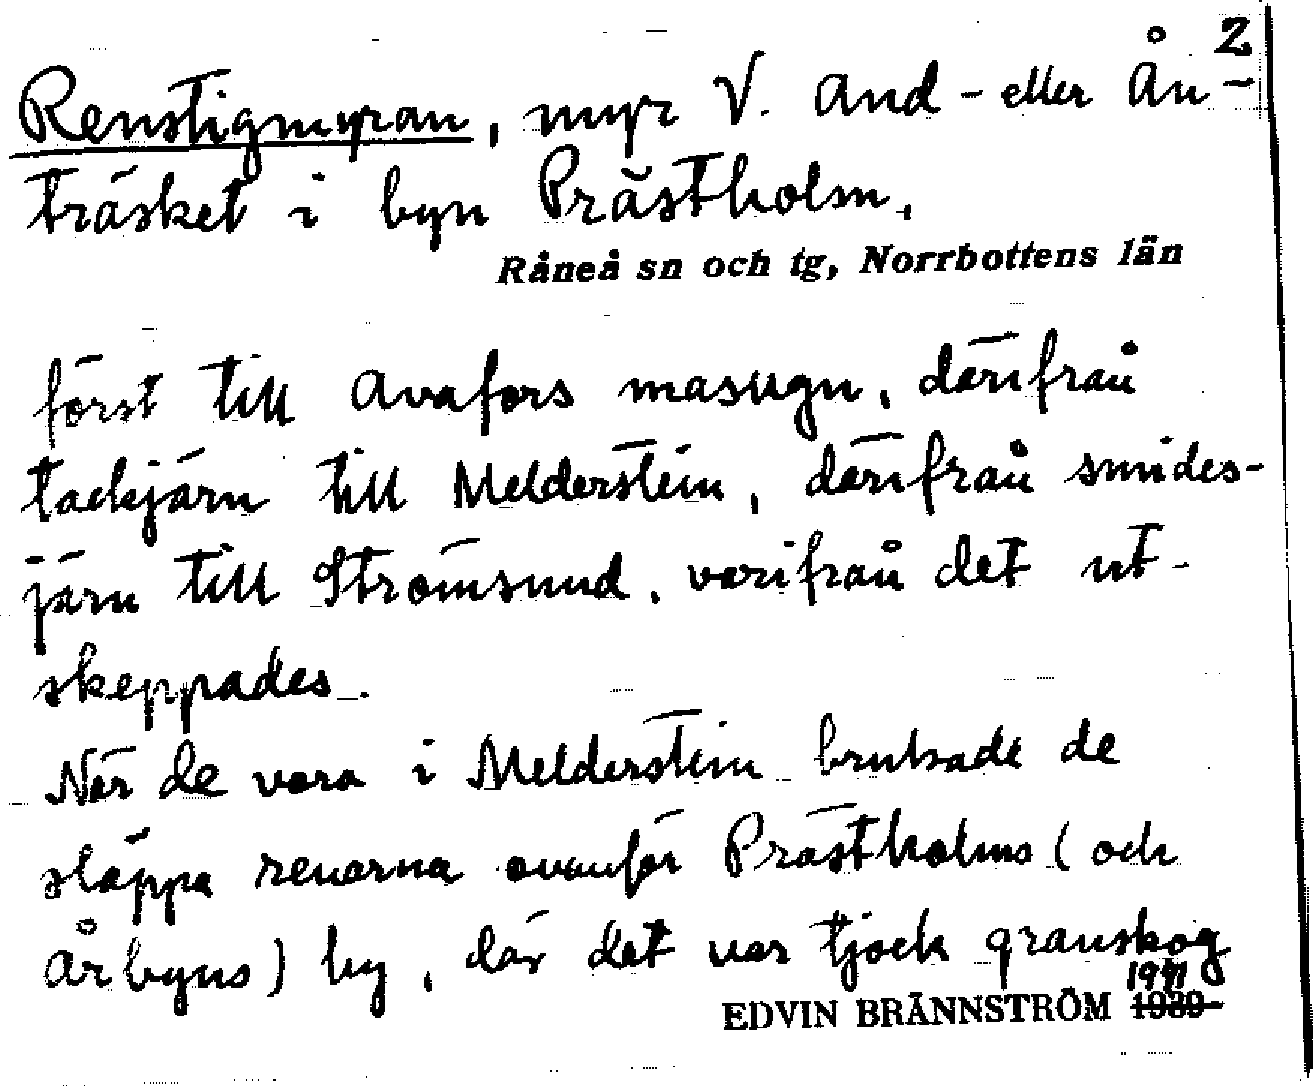 2
Renstigmyran, myr V. And- eller Ån-
träsket i byn Prästholm.
Råneå sn och tg, Norrbottens län
först till Avafors masugn, därifrån
tackjärn till Melderstein, därifrån smides-
järn till Strömsund, varifrån det ut-
skeppades.
När de vara i Melderstein brukade de
släppa renarna ovanför Prästholms (och
Årbyns) by, där det var tjock granskog
1941
EDVIN BRÄNNSTRÖM 1939